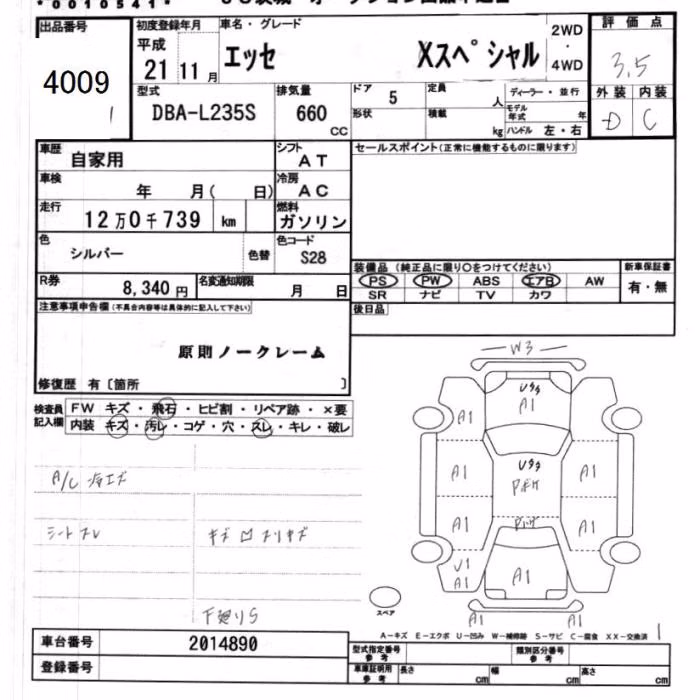 *0010541*
出品番号
4009
1
初度登録年月
平成
21 11 月
車名・グレード
エッセ Xスペシャル
2WD
・
4WD
評価点
3.5
外装 内装
D C
型式
DBA-L235S
排気量
660
CC
ドア
5
形状
定員
人
積載
kg
ディーラー・並行
モデル年式 年
ハンドル 左・右
車歴
自家用
シフト
AT
車検
年 月( 日)
冷房
AC
走行
12万0千739 km
燃料
ガソリン
色
シルバー
色替
色コード
S28
R券
8,340円
名変通知期限
月 日
セールスポイント(正常に機能するものに限ります)
装備品 (純正品に限り○をつけてください)
PS PW ABS エアB AW
SR ナビ TV カワ
新車保証書
有・無
後日品
注意事項申告欄(不具合内容等は具体的に記入して下さい)
原則ノークレーム
修復歴 有〔箇所 〕
検査員
記入欄
FW キズ・飛石・ヒビ割・リペア跡・×要
内装 キズ・汚レ・コゲ・穴・スレ・キレ・破レ
シートスレ
下廻りS
W3
Uタタ
A1
A1
A1
Uタタ
Pボケ
A1
A1
Pボケ
A1
A1
U1
A1
A1
A1
A1
スペア
A−キズ E−エクボ U−凹み W−補修跡 S−サビ C−腐食 XX−交換済
1
車台番号
2014890
登録番号
型式指定番号
参考
類別区分番号
参考
車庫証明用
参考
長さ cm
幅 cm
高さ cm